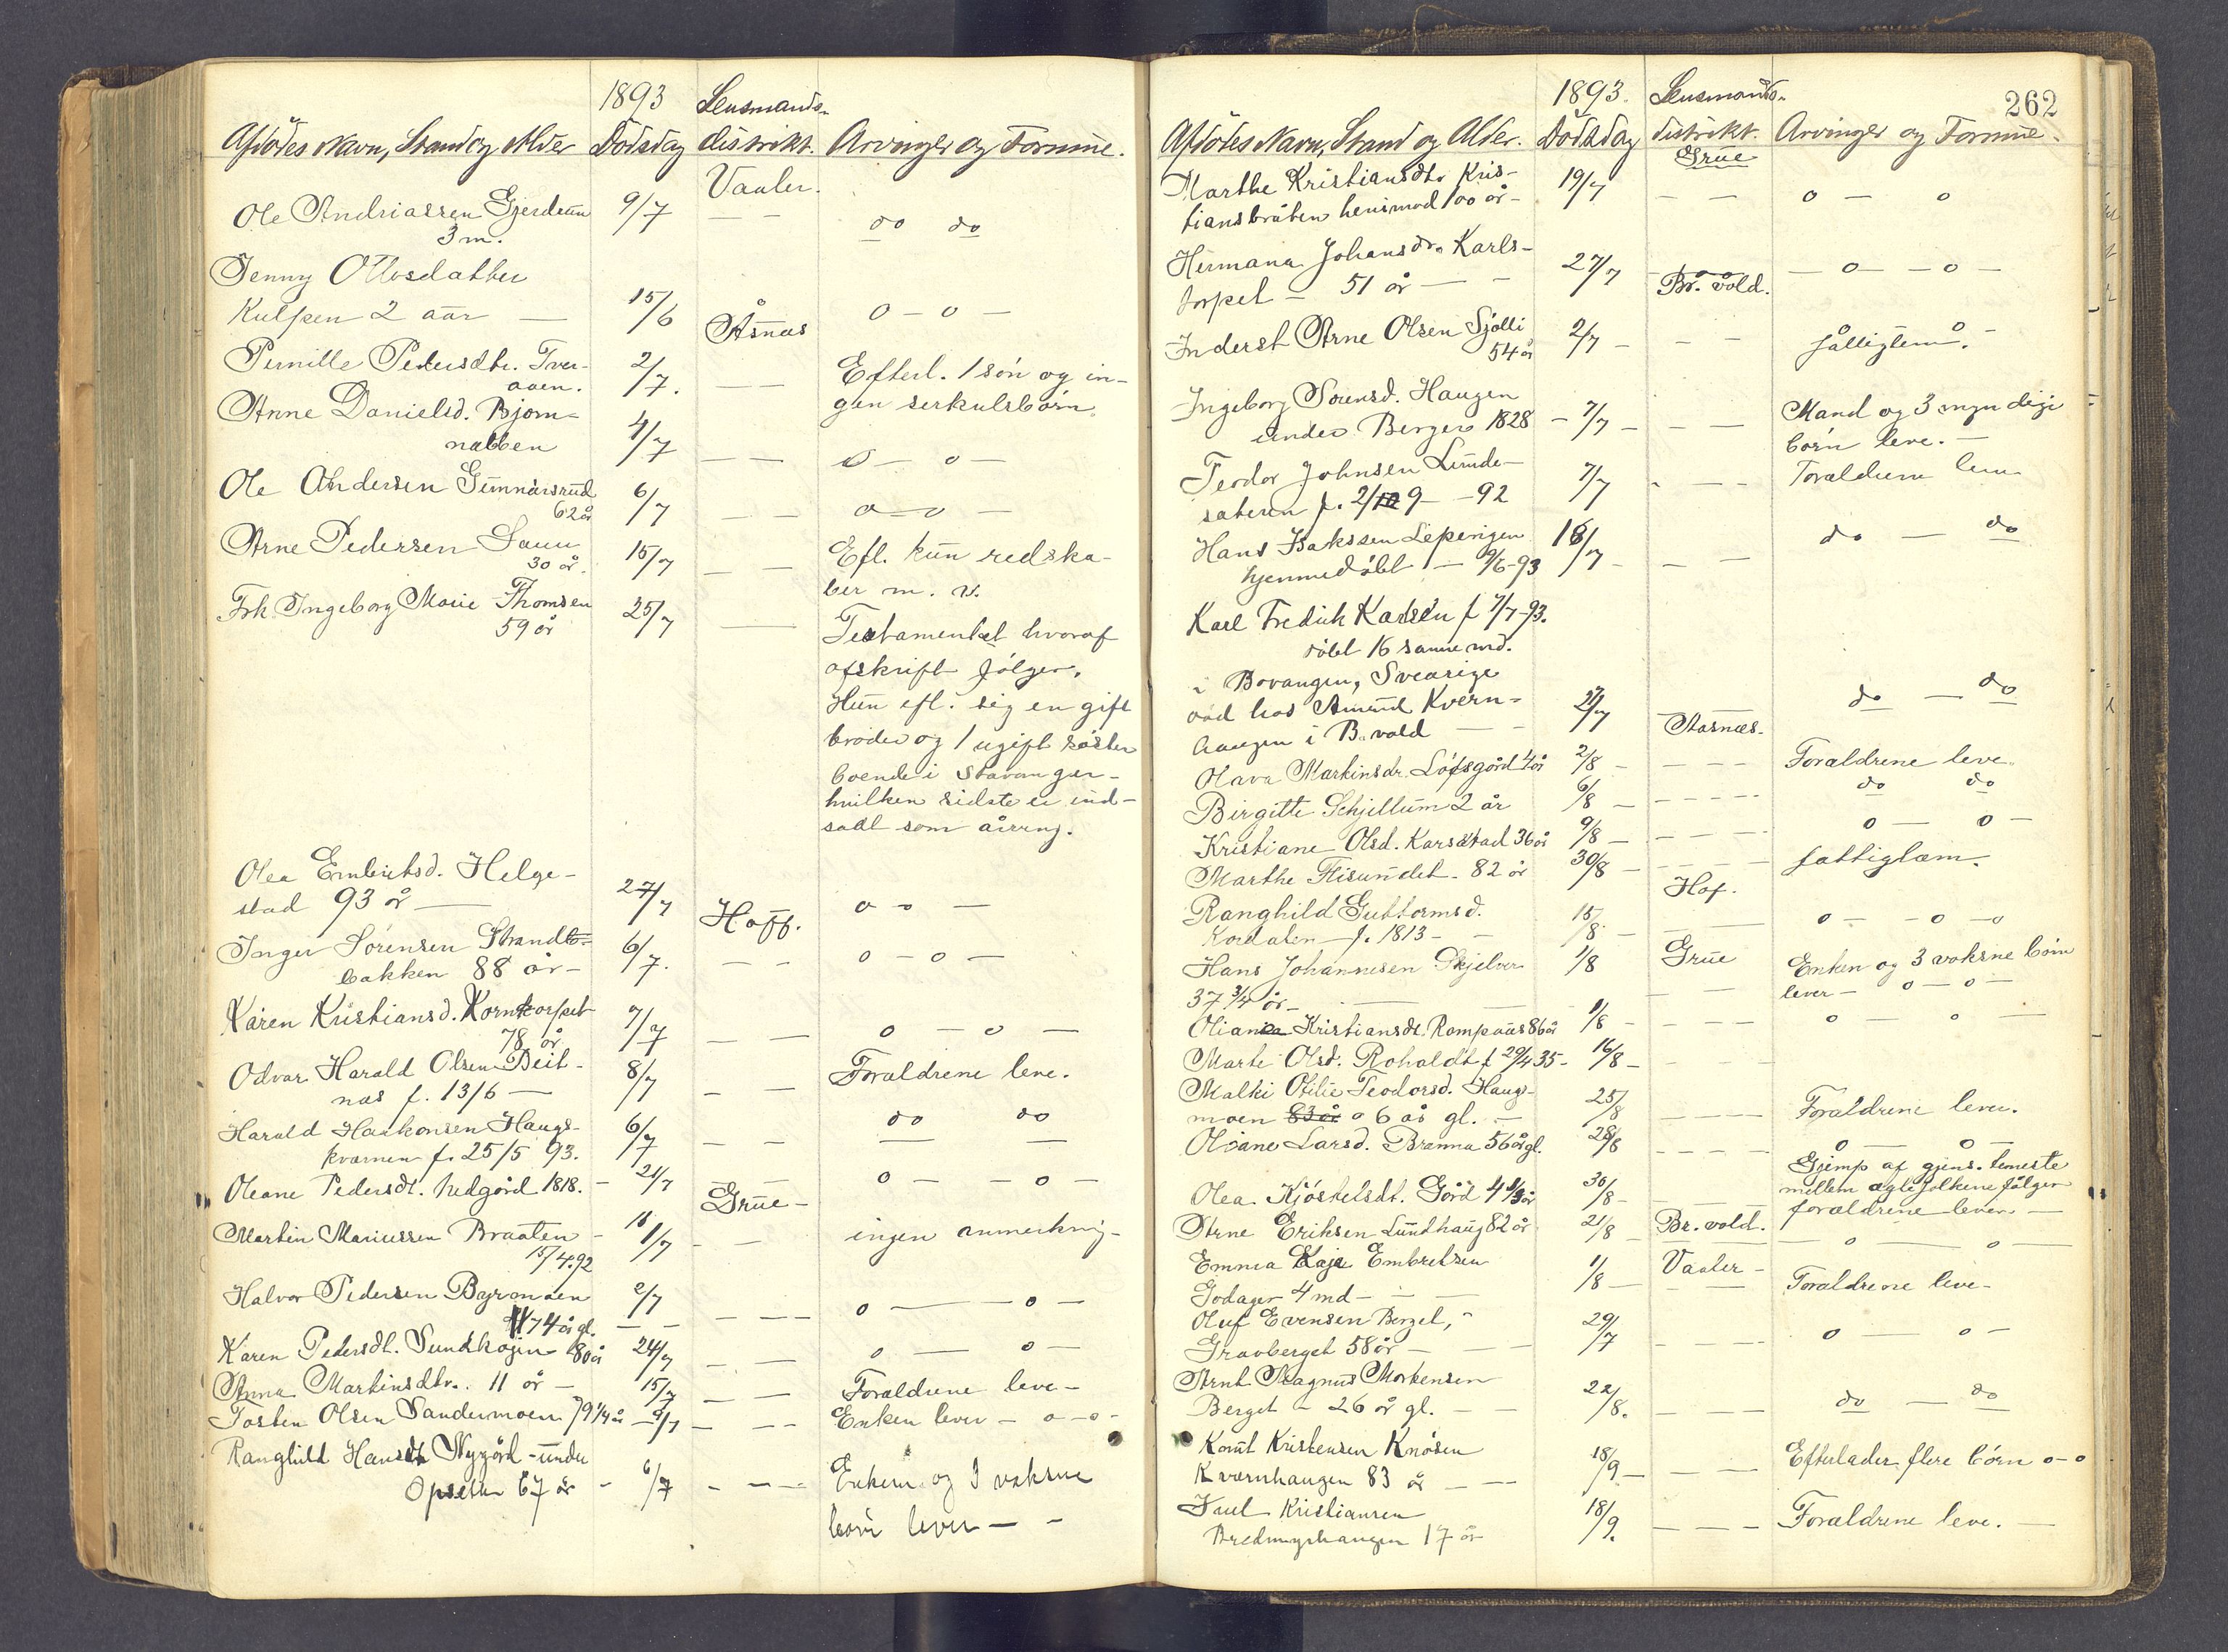 1893 Lensmands-
Afdødes Navn, Stand og Alder Dødsdag distrikt. Arvinger og Formue.
Vaaler.
Ole Andriassen Gjerdrum 9/7 — — do do
3 m.
Jenny Ottosdatter
Kulpen 2 aar — 15/6 o — o —
Åsnæs
Pernille Pedersdtr. Tver- 2/7. — — Efterl. 1 søn og in-
aaen. gen serkulsbørn.
Anne Danielsd. Bjørn-
nabben 4/7 — — o — o —
Ole Andersen Gunnarsrud 6/7 — — o — o —
62 år
Arne Pedersen 15/7 — — Efl. kun redska-
30 år. ber m. v.
Frk. Ingeborg Marie Thomsen 25/7 — Testamentet hvoraf
59 år afskrift følger.
Hun efl. sig en gift
broder og 1 ugift søster
boende i Stavanger-
hvilken sidste er ind-
sadt som arving.
Olea Embrektsd. Helge-
stad 93 år — 27/7 o — o —
Hoff.
Inger Sørensen Strandb-
bakken 88 år — 6/7. — — o — o —
Karen Kristiansd. Korntorpet 7/7 — — o — o —
78 år
Odvar Harald Olsen Beit- 8/7 — — Forældrene leve.
næs f. 13/6 —
Harald Haakonsen Haugs- 6/7 — — do do
kværnen f. 25/5 93.
Oleane Pedersdt. Nedgård 1818. — 21/7 — — o — — o —
Grue —
Martin Mariussen Braaten — 18/7 — — ingen anmerkning-
15/4.92
Halvor Pedersen Byrmoen 2/7 — — — o — o —
74 år gl.
Karen Pedersdt. Sundkojen 80 år 24/7 — — o — o —
Anna Martinsdtr. 11 år — 15/7 — — Forældrene leve —
Tosten Olsen Sandermoen 79 1/4 år — 9/7 — — — Enken lever — o — o —
Ranghild Hansdt. Nygård — under
Opseth 67 år — 6/7 — — — Enkem. og 3 voksne
børn lever — —
262
1893. Lensmands-
Afdødes Navn, Stand og Alder. Dødsdag distrikt. Arvinger og Formue.
Grue
Marthe Kristiansdtr. Kris- 19/7 — — o — o
tiansbråten henimod 100 år —
Hermana Johansdr. Karls-
torpet — 51 år — — 27/7 — — — o — — o —
Br. vold.
Inderst Arne Olsen Sjølli 2/7 — — — fattiglem. o —
54 år
Ingeborg Sørensd. Haugen Mand og 3 myndige
under Berger 1828 — 7/7 — — — børn leve. —
Teodor Johnsen Lunde- Forældrene leve
sæteren f. 2/9 — — 92 7/7 — — —
Hans Isaksen Løperigen 18/7 — — — do — do
hjemmedøbt — 9/6-93
Karl Fredrik Karlsen f 7/7-93.
døbt 16 samme md.
i Bovangen, Sverige
død hos Amund Kvern-
haugen i B. vold — — 27/7 do — do
Aasnæs.
Olava Martinsdr. Løfsgård 4 år 2/8 — — — — Forældrene leve.
Birgitte Schjellum 2 år 6/8 — — — — do do
Kristiane Olsd. Karsstad 36 år 9/8 — — — — o — o —
Marthe Flisundet — 82 år 30/8 — — — — fattiglam.
Hof.
Ranghild Guttormsd.
Kordalen — f. 1813 — — 15/8 — — o — — o — o
Hans Johannesen Skjelver 1/8 Grue Enken og 3 voksne børn
37 3/4 år — — — — — lever — o — o —
Oliana Kristiansdt. Rompaas 86 år 1/8 — — — — o — o —
Marte Olsd. Roholdt f 29/4 35 — 16/8 — — — —
Malki Otilie Teodorsd. Haugs-
moen 83 år o 6 år gl. — 25/8 — — — — Forældrene lever.
Oliane Larsd. Brænna 56 år gl. 28/8 — — — — o — o —
Gjenp. af gjens. temeste
Olea Kjøstelsdt. Gård 4 1/3 år 30/8 — mellem ægtefolkene følger
forældrene lever —
Arne Eriksen Lundhaug 82 år 21/8 — Br. vold. — o — o —
Emma Kaja Embretsen 1/8 — Vaaler — Forældrene leve —
Godager 4 md — — —
Oluf Evensen Berget, —
Gravberget 58 år — — — 29/7 — — — — o — o —
Arnt Magnus Mortensen
Berget — 26 år gl. — — 22/8. — — — do — do
Kornt Kristensen Knøsen
Kværnhaugen 83 år — — 18/9 — — — — Efterlader flere børn o — o
Juul Kristiansen 18/9. — — — Forældrene leve. —
Bredmyrhaugen 17 år